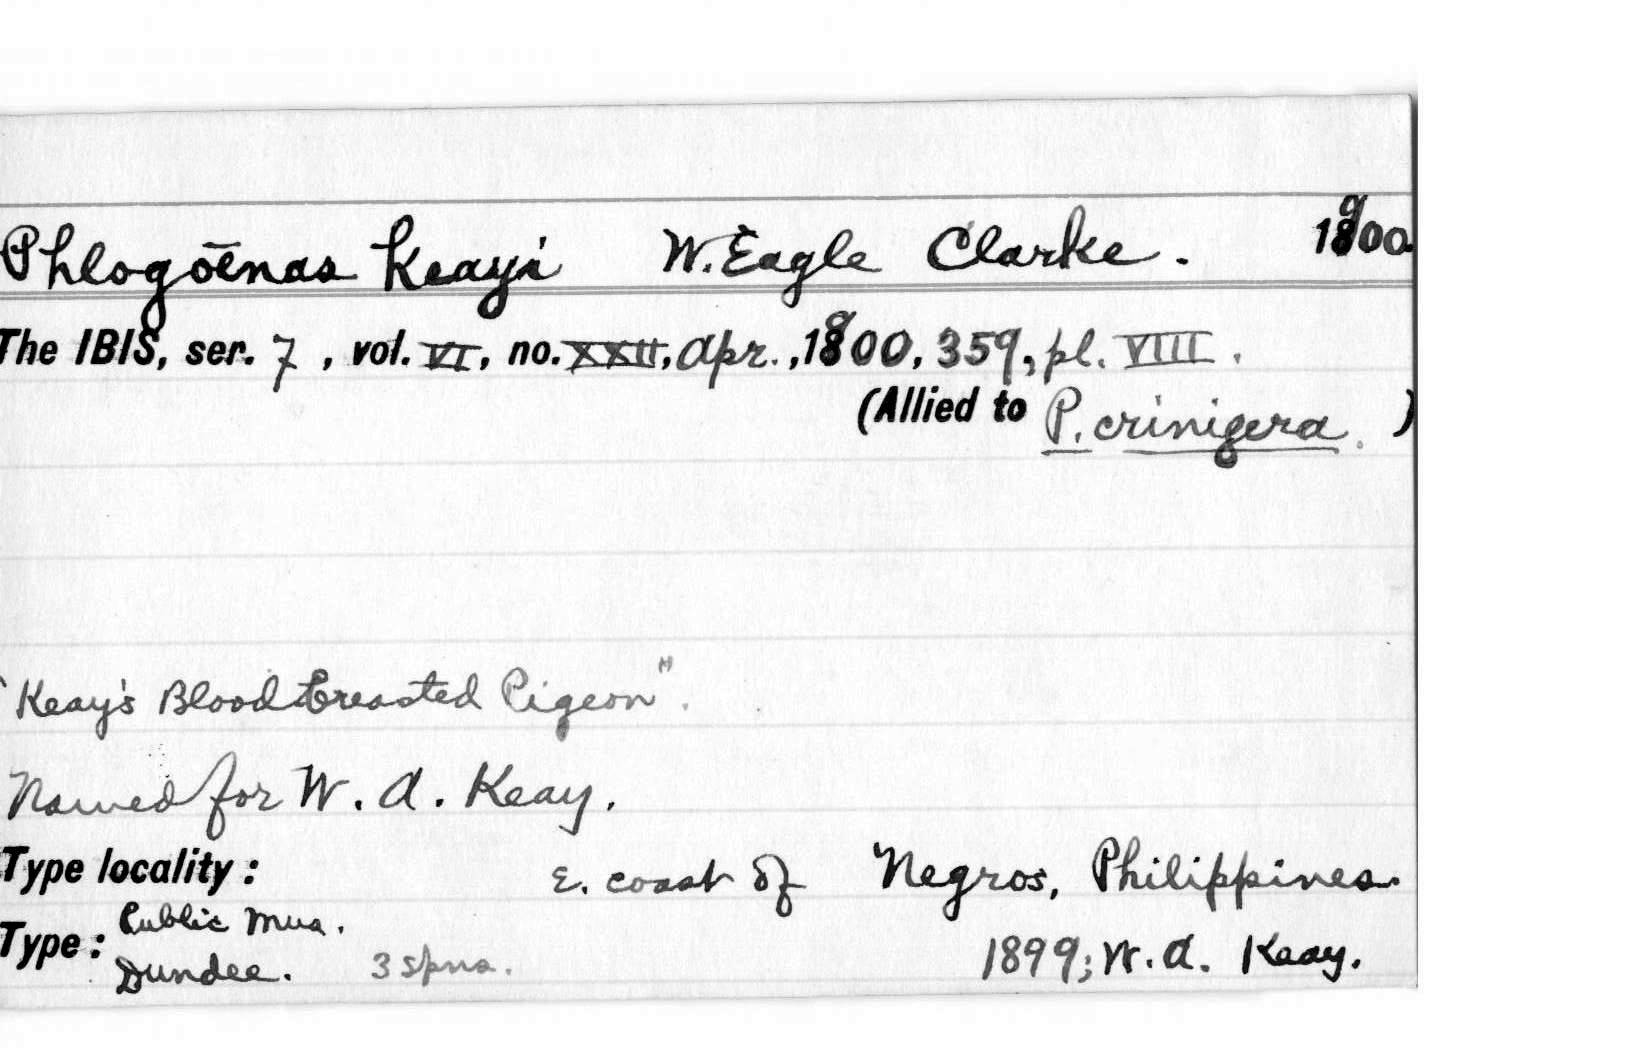 Phlogoēnas Keayi W. Eagle Clarke. 1900.
The IBIS, ser. 7, vol. VI, no. XXII, Apr., 1900, 359, pl. VIII.
(Allied to P. crinigera.)
"Keay's Blood breasted Pigeon".
Named for W. A. Keay.
Type locality: E. coast of Negros, Philippines.
Type: Public Mus. Dundee. 3 spns. 1899; W. A. Keay.